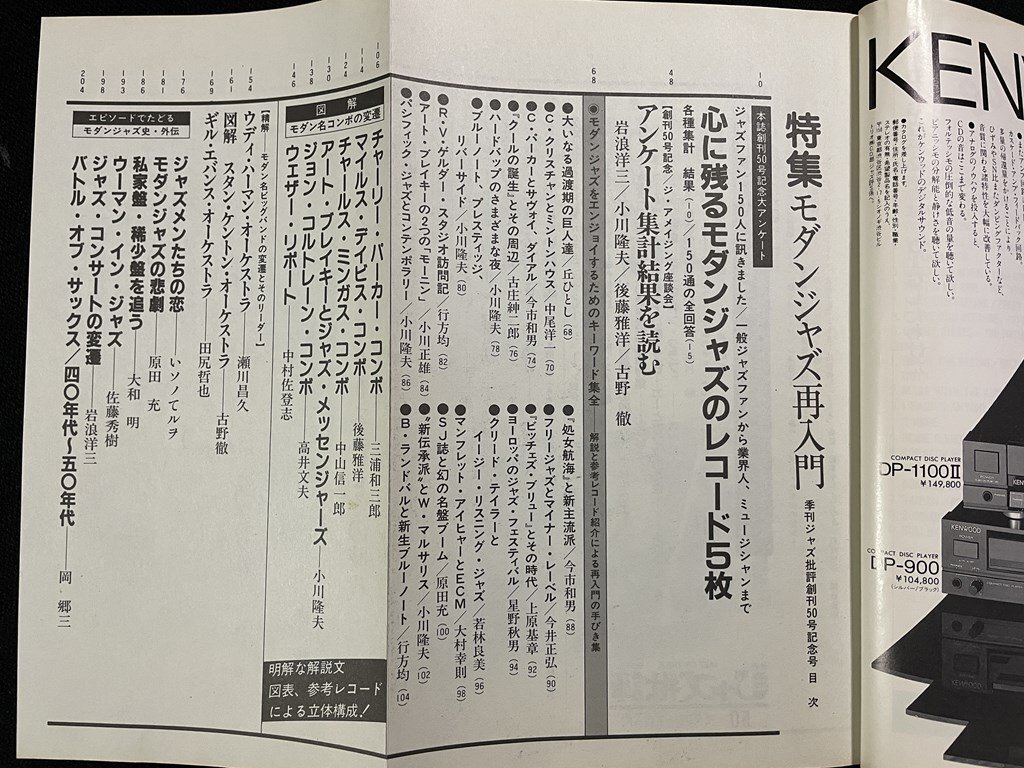 KENW
●カタログを差上げます。
CDの音はここまで変わる。
COMPACT DISC PLAYER
DP-1100II
¥149,800
COMPACT DISC PLAYER
DP-900
¥104,800
(シルバー/ブラック)
KENWOOD
特集モダンジャズ再入門
季刊ジャズ批評創刊50号記念号目次
10
本誌創刊50号記念大アンケート
ジャズファン150人に訊きました/一般ジャズファンから業界人、ミュージシャンまで
心に残るモダンジャズのレコード5枚
各種集計 結果(10)/150通の全回答(15)
48
【創刊50号記念・ジ・アメイジング座談会】
アンケート集計結果を読む
岩浪洋三/小川隆夫/後藤雅洋/古野 徹
68
◉モダンジャズをエンジョイするためのキーワード集全
解説と参考レコード紹介による再入門の手びき集
●大いなる過渡期の巨人達/丘ひとし(68)
●C・クリスチャンとミントンハウス/中尾洋一(70)
●C・パーカーとサヴォイ、ダイアル/今市和男(74)
●『クールの誕生』とその周辺/古庄紳二郎(76)
●ハードバップのさまざまな夜/小川隆夫(78)
●ブルーノート、プレスティッジ、
リバーサイド/小川隆夫(80)
●R・V・ゲルダー・スタジオ訪問記/行方均(82)
●アート・ブレイキーの2つの『モーニン』/小川正雄(84)
●パシフィック・ジャズとコンテンポラリー/小川隆夫(86)
●『処女航海』と新主流派/今市和男(88)
●フリージャズとマイナー・レーベル/今井正弘(90)
●『ビッチェズ・ブリュー』とその時代/上原基章(92)
●ヨーロッパのジャズ・フェスティバル/星野秋男(94)
●クリード・テイラーと
イージー・リスニング・ジャズ/若林良美(96)
●マンフレット・アイヒャーとECM/大村幸則(98)
●SJ誌と幻の名盤ブーム/原田充(100)
●“新伝承派”とW・マルサリス/小川隆夫(102)
●B・ランドバルと新生ブルーノート/行方均(104)
図解
モダン名コンボの変遷
106
チャーリー・パーカー・コンボ 三浦和三郎
114
マイルス・デイビス・コンボ 後藤雅洋
124
チャールス・ミンガス・コンボ 中山信一郎
130
アート・ブレイキーとジャズ・メッセンジャーズ 小川隆夫
138
ジョン・コルトレーン・コンボ 高井文夫
146
ウェザー・リポート 中村佐登志
明解な解説文
図表、参考レコード
による立体構成!
【精解──モダン名ビッグバンドの変遷とそのリーダー】
154
ウディ・ハーマン・オーケストラ 瀬川昌久
161
図解 スタン・ケントン・オーケストラ 古野徹
169
ギル・エバンス・オーケストラ 田尻哲也
エピソードでたどる
モダンジャズ史・外伝
176
ジャズメンたちの恋 いソノてルヲ
181
モダンジャズの悲劇 原田 充
186
私家盤・稀少盤を追う 大和 明
193
ウーマン・イン・ジャズ 佐藤秀樹
198
ジャズ・コンサートの変遷 岩浪洋三
204
バトル・オブ・サックス/四〇年代〜五〇年代 岡 郷三